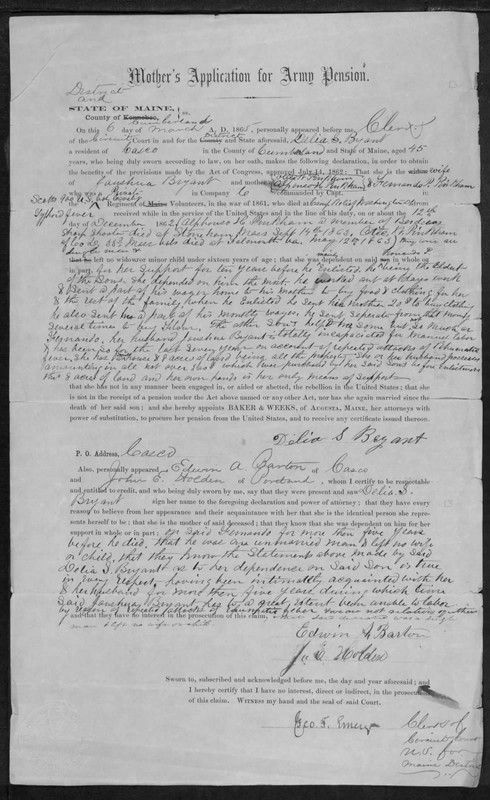 Mother's Application for Army Pension.
District
and
STATE OF MAINE,
County of Kennebec, Cumberland ss.
On this 6 day of March A. D. 1865, personally appeared before me, Clerk
of the Circuit Court in and for the County District and State aforesaid, Delia S. Bryant
a resident of Casco in the County of Cumberland and State of Maine, aged 45
years, who being duly sworn according to law, on her oath, makes the following declaration, in order to obtain
the benefits of the provisions made by the Act of Congress, approved July 14, 1862: That she is the wife
of Jonathan Bryant and mother of Alphonso W. Pinkham & Fernando P. Pinkham
who was a Private in Company G commanded by Capt.
in the Regiment of Maine Volunteers, in the war of 1861, who died at Washington of
Typhoid fever received while in the service of the United States and in the line of his duty, on or about the 12th
day of December 1862 Alphonso W. Pinkham a member of
Sharp Shooters died at Stoneham Mass Sept 14th 1863, Pinkham
of Co. 38th Mass Vols died at Falmouth Va. May 12th 1863 they were all
single men &
that he left no widow or minor child under sixteen years of age; that she was dependent on said son in whole or
in part, for her support for ten years before he Enlisted. He being the Eldest
of the Sons. She depended on him the most. he worked out at Days work
& Sent a part of his wages home to his mother to buy food & clothing for her
& the rest of the family, when he Enlisted he Sent his Mother 20 \$ to buy clothing
he also Sent me a part of his monthly wages, he Sent seperate from that money
Several times to buy . The other Sons helped me Some but So much as
Fernando, her husband Jonathan Bryant is totally incapacitated for manual labor
& has been So for the last Seven years on account of repeated attacks of Rheumatic
fever. She has a house & acre of land being all the property She or her husband possesses
amounting in all not over \$ which was purchased by her Said Sons before Enlistment
this acres of land and her own hands is her only means of Support
that she has not in any manner been engaged in, or aided or abetted, the rebellion in the United States; that she
is not in the receipt of a pension under the Act above named or any other Act, nor has she again married since the
death of her said son; and she hereby appoints BAKER & WEEKS, of AUGUSTA, MAINE, her attorneys with power
of substitution, to procure her pension from the United States, and to receive any certificate issued thereon.
Delia S Bryant
P. O. Address, Casco
Also, personally appeared Edwin A Barton of Casco
and John E. Holden of Portland, whom I certify to be respectable
and entitled to credit, and who being duly sworn by me, say that they were present and saw Delia S.
Bryant sign her name to the foregoing declaration and power of attorney; that they have every
reason to believe from her appearance and their acquaintance with her that she is the identical person she repre-
sents herself to be; that she is the mother of said deceased; that they know that she was dependent on him for her
support in whole or in part; on Said Fernando for more than five years
before he died, that he was an unmarried man & left no wife
or child, that they know the Statement above made by Said
Delia S. Bryant as to her dependence on Said Son is true
in every respect, having been intimately acquainted with her
& her husband for more than five years during which time
Said Jonathan Bryant has to a great extent been unable to labor
by reason of
and that they have no interest in the prosecution of this claim,
Edwin A Barton
Jn E. Holden
Sworn to, subscribed and acknowledged before me, the day and year aforesaid; and
I hereby certify that I have no interest, direct or indirect, in the prosecution
of this claim. WITNESS my hand and the seal of said Court.
Geo. F. Emery
Clerk of
Circuit Court
U.S. for
Maine District